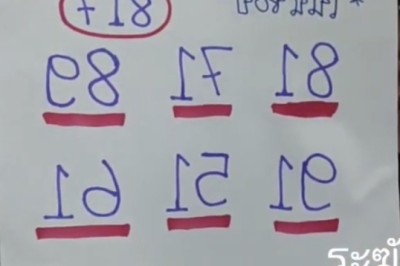 81 71 89
91 51 61
ระฆัง